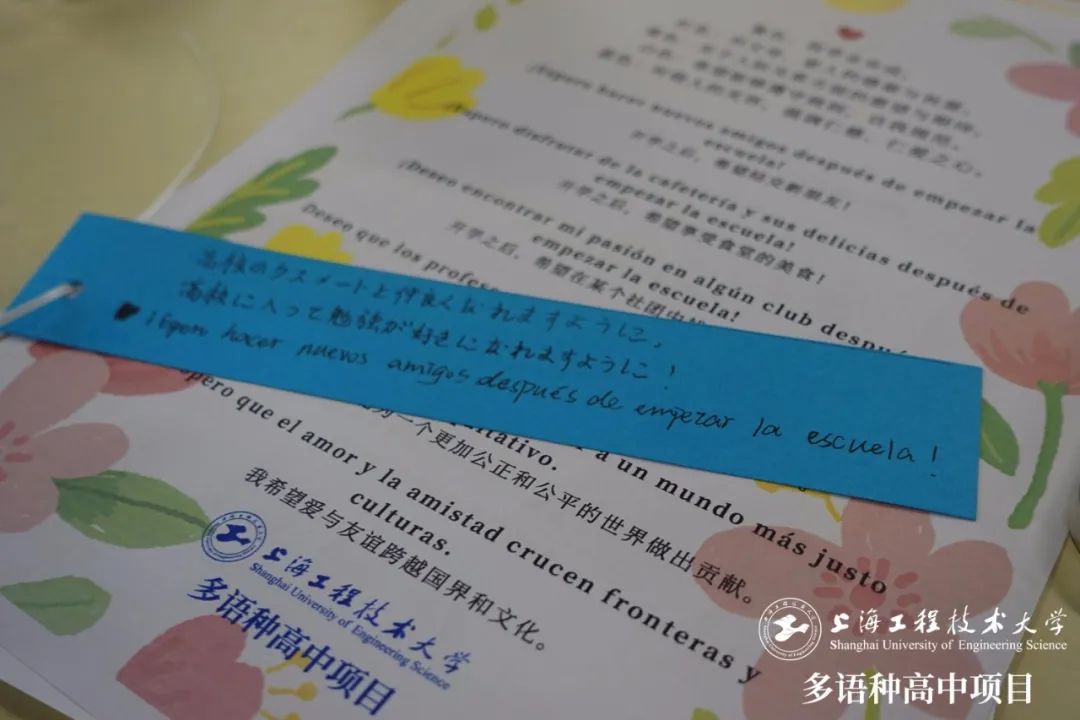 ¡Espero hacer nuevos amigos después de empezar la
escuela!
开学之后，希望结交新朋友！
¡Espero disfrutar de la cafetería y sus delicias después de
empezar la escuela!
开学之后，希望享受食堂的美食！
¡Deseo encontrar mi pasión en algún club después
empezar la escuela!
开学之后，希望在某个社团中
Deseo que los profes
高校のクスメートと仲良くなれますように、
高校に入って勉強が好きになれますように！
¡Espero hacer nuevos amigos después de empezar la escuela!
a un mundo más justo
itativo.
一个更加公正和公平的世界做出贡献。
pero que el amor y la amistad crucen fronteras y
culturas.
我希望爱与友谊跨越国界和文化。
上海工程技术大学
Shanghai University of Engineering Science
多语种高中项目
上海工程技术大学
Shanghai University of Engineering Science
多语种高中项目